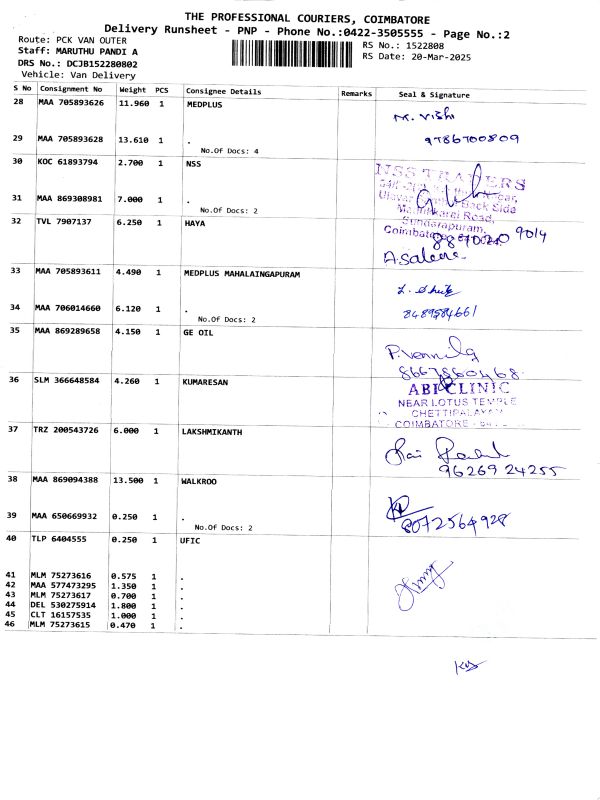 THE PROFESSIONAL COURIERS, COIMBATORE
Delivery Runsheet - PNP - Phone No.:0422-3505555 - Page No.:2
Route: PCK VAN OUTER
Staff: MARUTHU PANDI A
DRS No.: DCJB152280802
Vehicle: Van Delivery
RS No.: 1522808
RS Date: 20-Mar-2025
S No Consignment No Weight PCS Consignee Details Remarks Seal & Signature
28 MAA 705893626 11.960 1 MEDPLUS
M. Vishi
29 MAA 705893628 13.610 1 . 9786700809
No.Of Docs: 4
30 KOC 61893794 2.700 1 NSS
NSS TRADERS
Back Side
31 MAA 869308981 7.000 1 .
No.Of Docs: 2
Road,
Sundarapuram,
Coimbatore
32 TVL 7907137 6.250 1 HAYA
8870209014
33 MAA 705893611 4.490 1 MEDPLUS MAHALAINGAPURAM
34 MAA 706014660 6.120 1 . 8489584661
No.Of Docs: 2
35 MAA 869289658 4.150 1 GE OIL
8667860468
36 SLM 366648584 4.260 1 KUMARESAN
ABI CLINIC
NEAR LOTUS TEMPLE
CHETTIPALAYAM
COIMBATORE
37 TRZ 200543726 6.000 1 LAKSHMIKANTH
96269 24255
38 MAA 869094388 13.500 1 WALKROO
39 MAA 650669932 0.250 1 . 8072564928
No.Of Docs: 2
40 TLP 6404555 0.250 1 UFIC
41 MLM 75273616 0.575 1 .
42 MAA 577473295 1.350 1 .
43 MLM 75273617 0.700 1 .
44 DEL 530275914 1.800 1 .
45 CLT 16157535 1.000 1 .
46 MLM 75273615 0.470 1 .